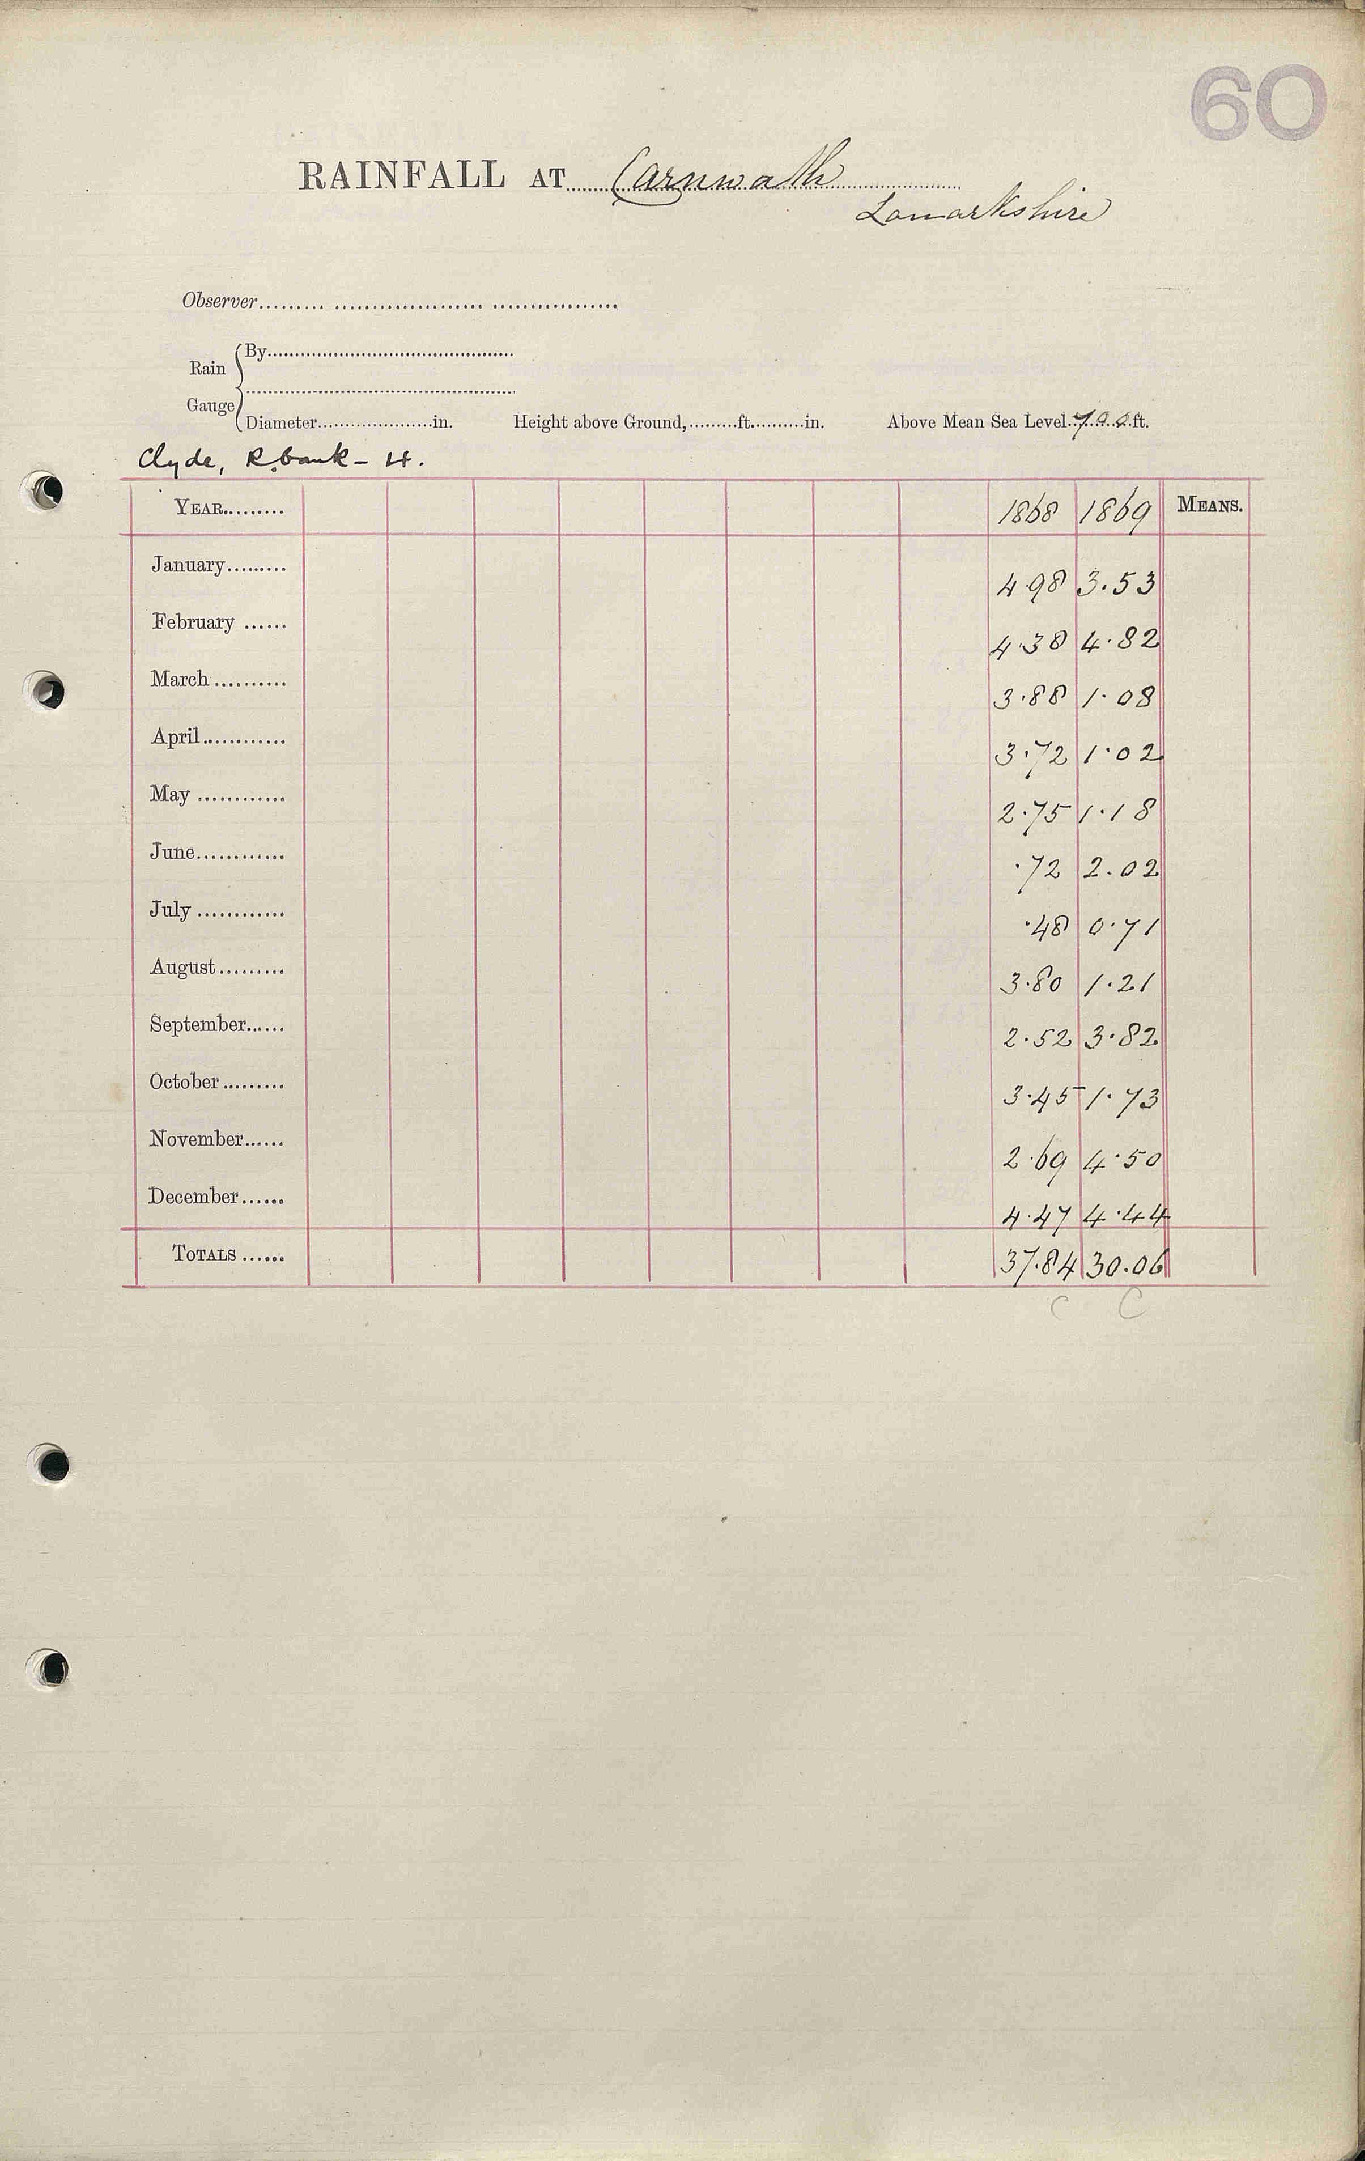 60
RAINFALL AT Carnwath
Lanarkshire
Observer
Rain Gauge By
Diameter in. Height above Ground, ft. in. Above Mean Sea Level 700 ft.
Clyde, R. bank - H.
YEAR 1868 1869 MEANS.
January 4.98 3.53
February 4.38 4.82
March 3.88 1.08
April 3.72 1.02
May 2.75 1.18
June .72 2.02
July .48 0.71
August 3.80 1.21
September 2.52 3.82
October 3.45 1.73
November 2.69 4.50
December 4.47 4.44
TOTALS 37.84 30.06
C C